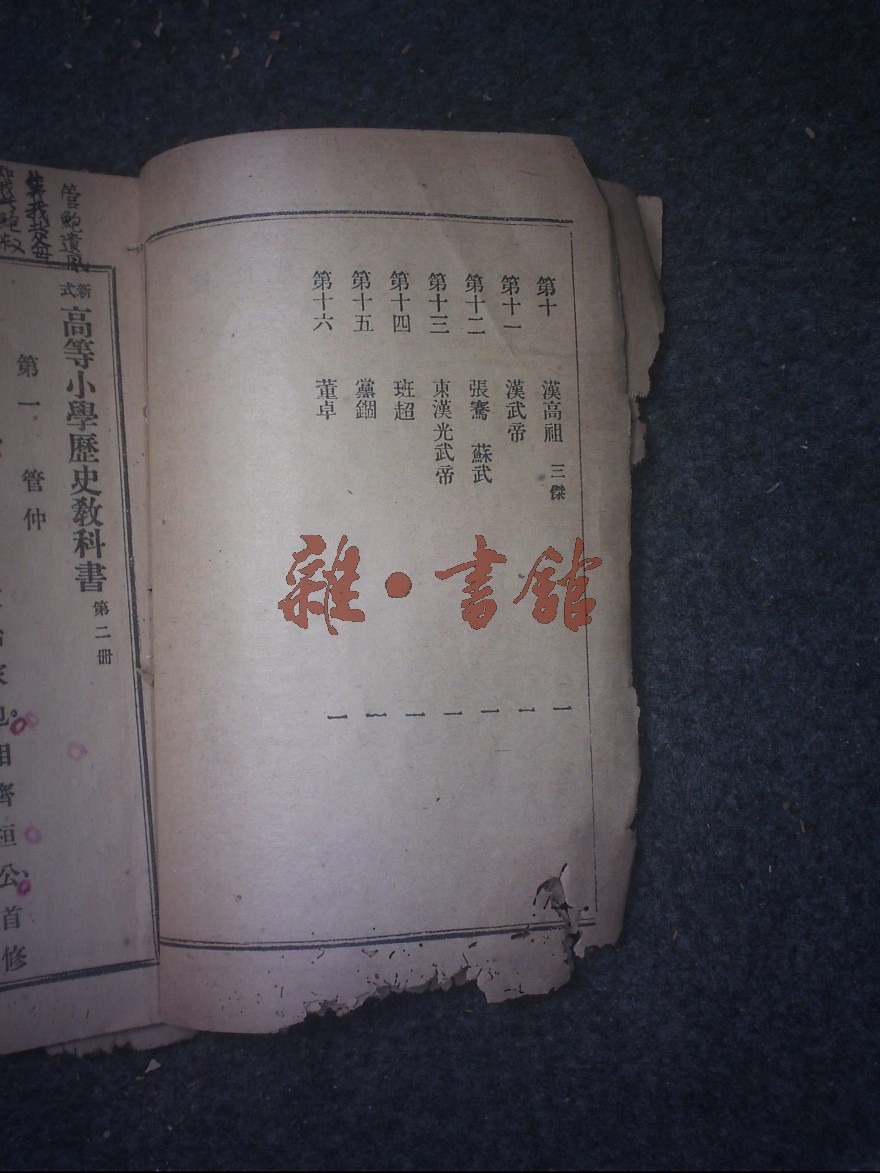 第十　漢高祖　三傑　一
第十一　漢武帝　一
第十二　張騫　蘇武　一
第十三　東漢光武帝　一
第十四　班超　一
第十五　黨錮　一
第十六　董卓　一
雜·書館
管鮑遺風
新式高等小學歷史教科書　第二冊
第一　管仲
也。相齊桓公、首修
生我父母
我鮑叔